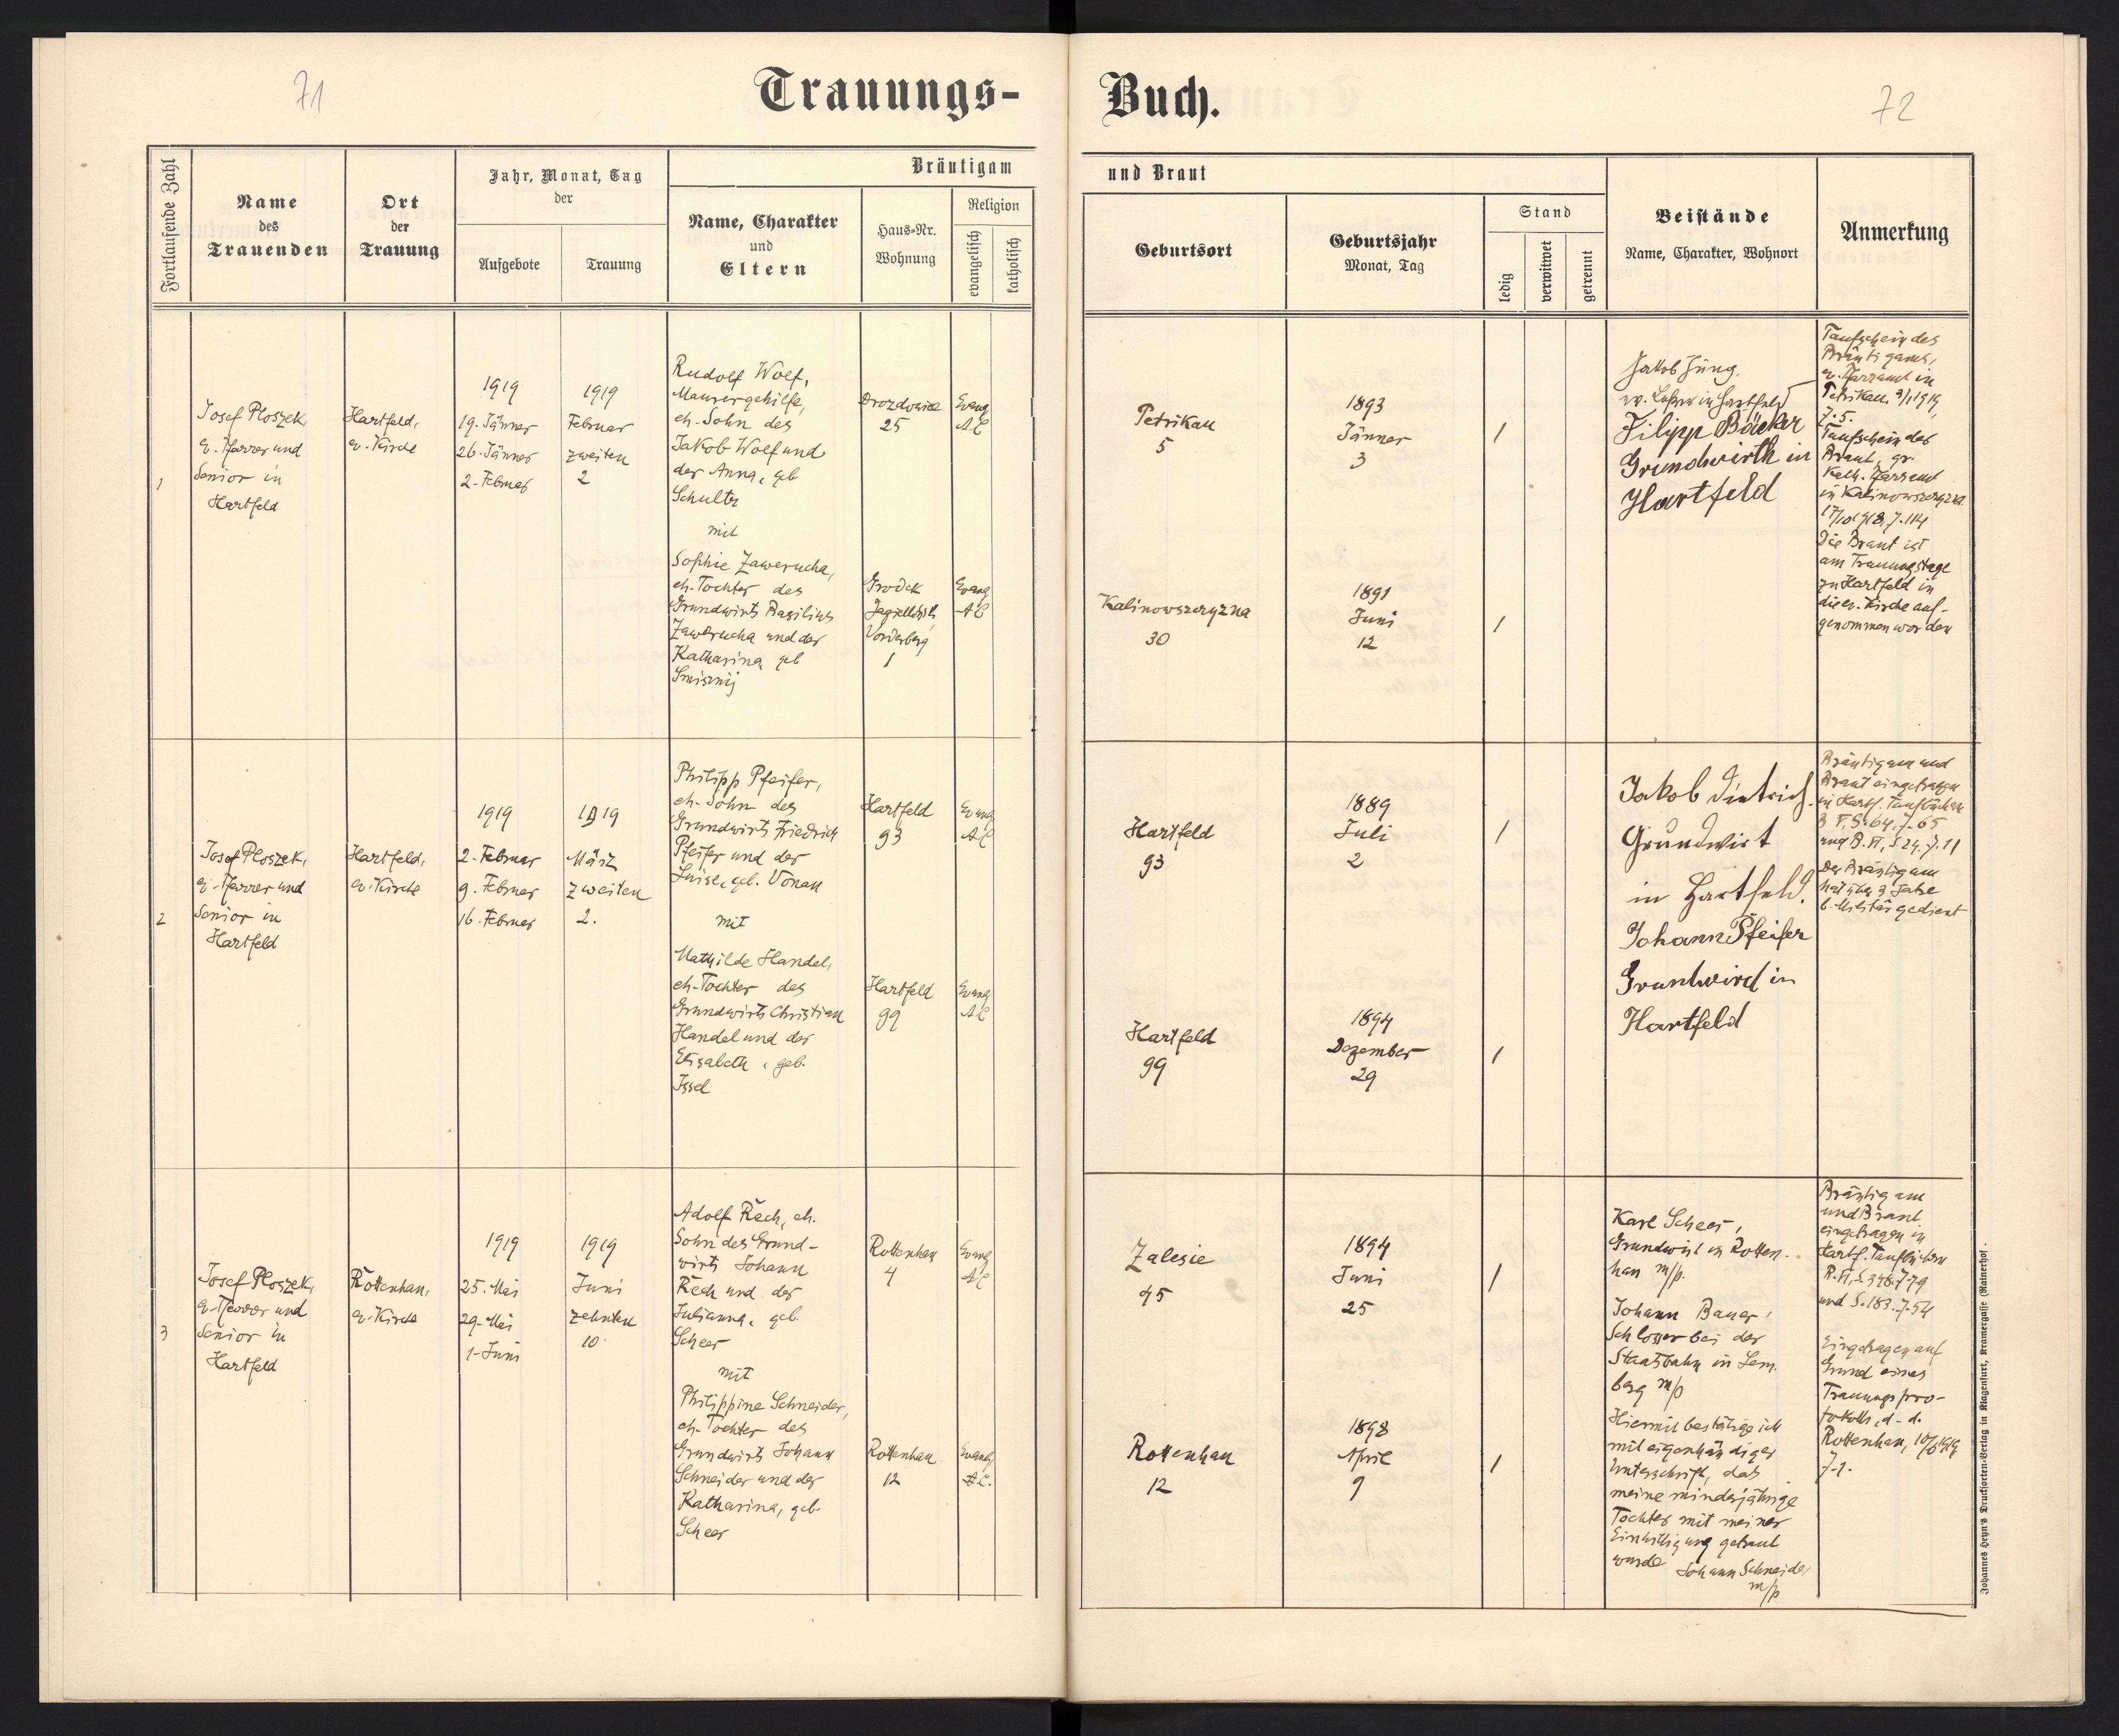 71
Trauungs-
Fortlaufende Zahl
Name
des
Trauenden
Ort
der
Trauung
Jahr, Monat, Tag
der
Aufgebote
Trauung
Bräutigam
Name, Charakter
und
Eltern
Haus-Nr.
Wohnung
Religion
evangelisch
katholisch
1
Josef Ploszek,
ev. Pfarrer und
Senior in
Hartfeld
Hartfeld,
ev. Kirche
1919
19. Jänner
26. Jänner
2. Februar
1919
Februar
zweiten
2
Rudolf Wolf,
Maurergehilfe,
eh. Sohn des
Jakob Wolf und
der Anna, geb.
Schultz
mit
Sophie Zawerucha,
eh. Tochter des
Grundwirts Basilius
Zawerucha und der
Katharina, geb
Drozdowice
25
Grodek
Vorderberg
1
Evang
AC
Evang
AC
2
Josef Ploszek,
ev. Pfarrer und
Senior in
Hartfeld
Hartfeld,
ev. Kirche
1919
2. Februar
9. Februar
16. Februar
1919
März
zweiten
2.
Philipp Pfeifer,
eh. Sohn des
Grundwirts Friedrich
Pfeifer und der
Luise, geb. Vonau
mit
Mathilde Handel,
eh. Tochter des
Grundwirts Christian
Handel und der
Elisabeth, geb.
Issel
Hartfeld
93
Hartfeld
99
Evang
AC
Evang
AC
3
Josef Ploszek,
ev. Pfarrer und
Senior in
Hartfeld
Rottenhan,
ev. Kirche
1919
25. Mai
29. Mai
1. Juni
1919
Juni
zehnten
10.
Adolf Rech, eh.
Sohn des Grund-
wirts Johann
Rech und der
Julianna, geb.
Scheer
mit
Philippine Schneider,
eh. Tochter des
Grundwirts Johann
Schneider und der
Katharina, geb.
Scheer
Rottenhan
4
Rottenhan
12
Evang
AC
Evang
AC.
72
Buch.
und Braut
Geburtsort
Geburtsjahr
Monat, Tag
Stand
ledig
verwitwet
getrennt
Beistände
Name, Charakter, Wohnort
Anmerkung
Petrikau
5
1893
Jänner
3
/
Kalinowszczyzna
30
1891
Juni
12
/
Jakob Jung,
ev. Lehrer in Hartfeld
Filipp Bäcker
Grundwirth in
Hartfeld
Taufschein des
Bräutigams,
ev. Pfarramt in
Petrikau, 3/1 1919,
Z. 5.
Taufschein der
Braut, gr.
kath. Pfarramt
in Kalinowszczyzna
17/10 1918, Z. 114
Die Braut ist
am Trauungstage
zu Hartfeld in
die ev. Kirche auf-
genommen worden
Hartfeld
93
1889
Juli
2
/
Hartfeld
99
1894
Dezember
29
/
Jakob Dietrich.
Grundwirt
in Hartfeld.
Johann Pfeifer
Gruntwird in
Hartfeld
Bräutigam und
Braut eingetragen
in Hartf. Taufbüchern
B V, S. 64, Z. 65
und B. VI, S 24, Z. 11
Der Bräutigam
hat über 3 Jahre
b. Militär gedient
Zalesie
45
1894
Juni
25
/
Rottenhan
12
1898
April
9
/
Karl Scheer,
Grundwirt in Rotten-
han m/p.
Johann Bauer,
Schlosser bei der
Staatsbahn in Lem-
berg m/p
Hiermit bestätige ich
mit eigenhändiger
Unterschrift, das
meine minderjährige
Tochter mit meiner
Einwilligung getraut
wurde Johann Schneider
m/p
Bräutigam
und Braut
eingetragen in
Hartf. Taufbüchern
B. VI, S 348, Z. 79
und S. 183. Z. 54
Eingetragen auf
Grund eines
Trauungspro-
tokolls, d. d.
Rottenhan, 10/6 1919
Z. 1.
Johannes Heyn's Drucksorten-Verlag in Klagenfurt, Kramergasse (Rainerhof).